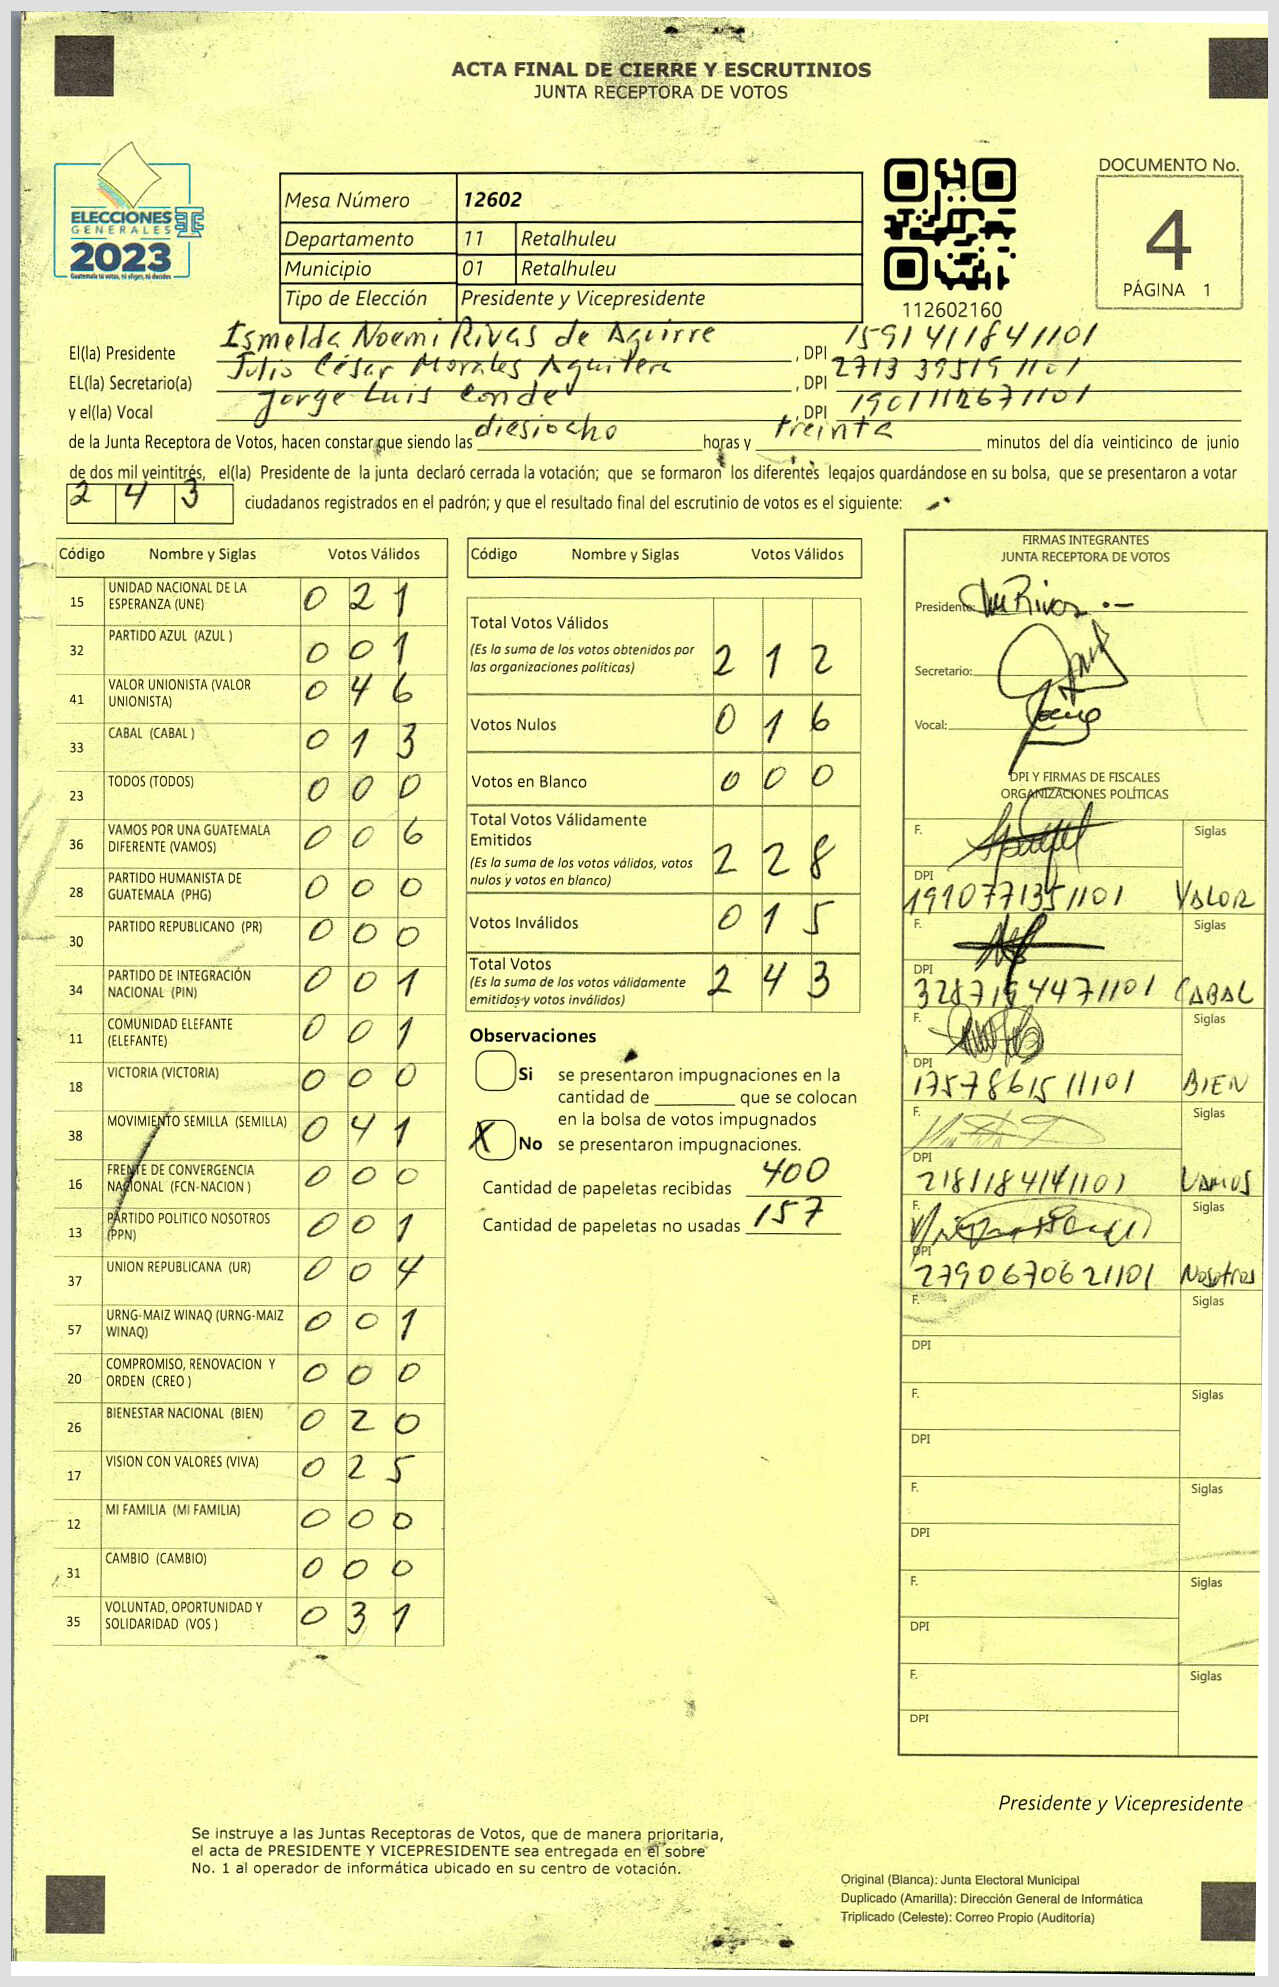 ACTA FINAL DE CIERRE Y ESCRUTINIOS
JUNTA RECEPTORA DE VOTOS
ELECCIONES
GENERALES
2023
Guatemala tú votas, tú eliges, tú decides
Mesa Número 12602
Departamento 11 Retalhuleu
Municipio 01 Retalhuleu
Tipo de Elección Presidente y Vicepresidente
112602160
DOCUMENTO No.
4
PÁGINA 1
El(la) Presidente Ismelda Noemi Rivas de Aguirre, DPI 1591411841101
EL(la) Secretario(a) Julio César Morales Aguilera, DPI 2713395191101
y el(la) Vocal Jorge Luis Conde, DPI 1901112671101
de la Junta Receptora de Votos, hacen constar que siendo las diesiocho horas y treinta minutos del día veinticinco de junio
de dos mil veintitrés, el(la) Presidente de la junta declaró cerrada la votación; que se formaron los diferentes legajos quardándose en su bolsa, que se presentaron a votar
2 4 3 ciudadanos registrados en el padrón; y que el resultado final del escrutinio de votos es el siguiente:
Código Nombre y Siglas Votos Válidos
15 UNIDAD NACIONAL DE LA ESPERANZA (UNE) 0 2 1
32 PARTIDO AZUL (AZUL ) 0 0 1
41 VALOR UNIONISTA (VALOR UNIONISTA) 0 4 6
33 CABAL (CABAL ) 0 1 3
23 TODOS (TODOS) 0 0 0
36 VAMOS POR UNA GUATEMALA DIFERENTE (VAMOS) 0 0 6
28 PARTIDO HUMANISTA DE GUATEMALA (PHG) 0 0 0
30 PARTIDO REPUBLICANO (PR) 0 0 0
34 PARTIDO DE INTEGRACIÓN NACIONAL (PIN) 0 0 1
11 COMUNIDAD ELEFANTE (ELEFANTE) 0 0 1
18 VICTORIA (VICTORIA) 0 0 0
38 MOVIMIENTO SEMILLA (SEMILLA) 0 4 1
16 FRENTE DE CONVERGENCIA NACIONAL (FCN-NACION ) 0 0 0
13 PARTIDO POLITICO NOSOTROS (PPN) 0 0 1
37 UNION REPUBLICANA (UR) 0 0 4
57 URNG-MAIZ WINAQ (URNG-MAIZ WINAQ) 0 0 1
20 COMPROMISO, RENOVACION Y ORDEN (CREO ) 0 0 0
26 BIENESTAR NACIONAL (BIEN) 0 2 0
17 VISION CON VALORES (VIVA) 0 2 5
12 MI FAMILIA (MI FAMILIA) 0 0 0
31 CAMBIO (CAMBIO) 0 0 0
35 VOLUNTAD, OPORTUNIDAD Y SOLIDARIDAD (VOS ) 0 3 1
Código Nombre y Siglas Votos Válidos
Total Votos Válidos
(Es la suma de los votos obtenidos por
las organizaciones políticas) 2 1 2
Votos Nulos 0 1 6
Votos en Blanco 0 0 0
Total Votos Válidamente
Emitidos
(Es la suma de los votos válidos, votos
nulos y votos en blanco) 2 2 8
Votos Inválidos 0 1 5
Total Votos
(Es la suma de los votos válidamente
emitidos y votos inválidos) 2 4 3
Observaciones
Si se presentaron impugnaciones en la
cantidad de ________ que se colocan
en la bolsa de votos impugnados
X No se presentaron impugnaciones.
Cantidad de papeletas recibidas 400
Cantidad de papeletas no usadas 157
FIRMAS INTEGRANTES
JUNTA RECEPTORA DE VOTOS
Presidente:
Secretario:
Vocal:
DPI Y FIRMAS DE FISCALES
ORGANIZACIONES POLÍTICAS
F. Siglas
DPI 1910771351101 VALOR
F. Siglas
DPI 3287194471101 CABAL
F. Siglas
DPI 1757861511101 BIEN
F. Siglas
DPI 2181184141101 VAMOS
F. Siglas
DPI 2790670621101 Nosotros
F. Siglas
DPI
F. Siglas
DPI
F. Siglas
DPI
F. Siglas
DPI
F. Siglas
DPI
Presidente y Vicepresidente
Se instruye a las Juntas Receptoras de Votos, que de manera prioritaria,
el acta de PRESIDENTE Y VICEPRESIDENTE sea entregada en el sobre
No. 1 al operador de informática ubicado en su centro de votación.
Original (Blanca): Junta Electoral Municipal
Duplicado (Amarilla): Dirección General de Informática
Triplicado (Celeste): Correo Propio (Auditoría)